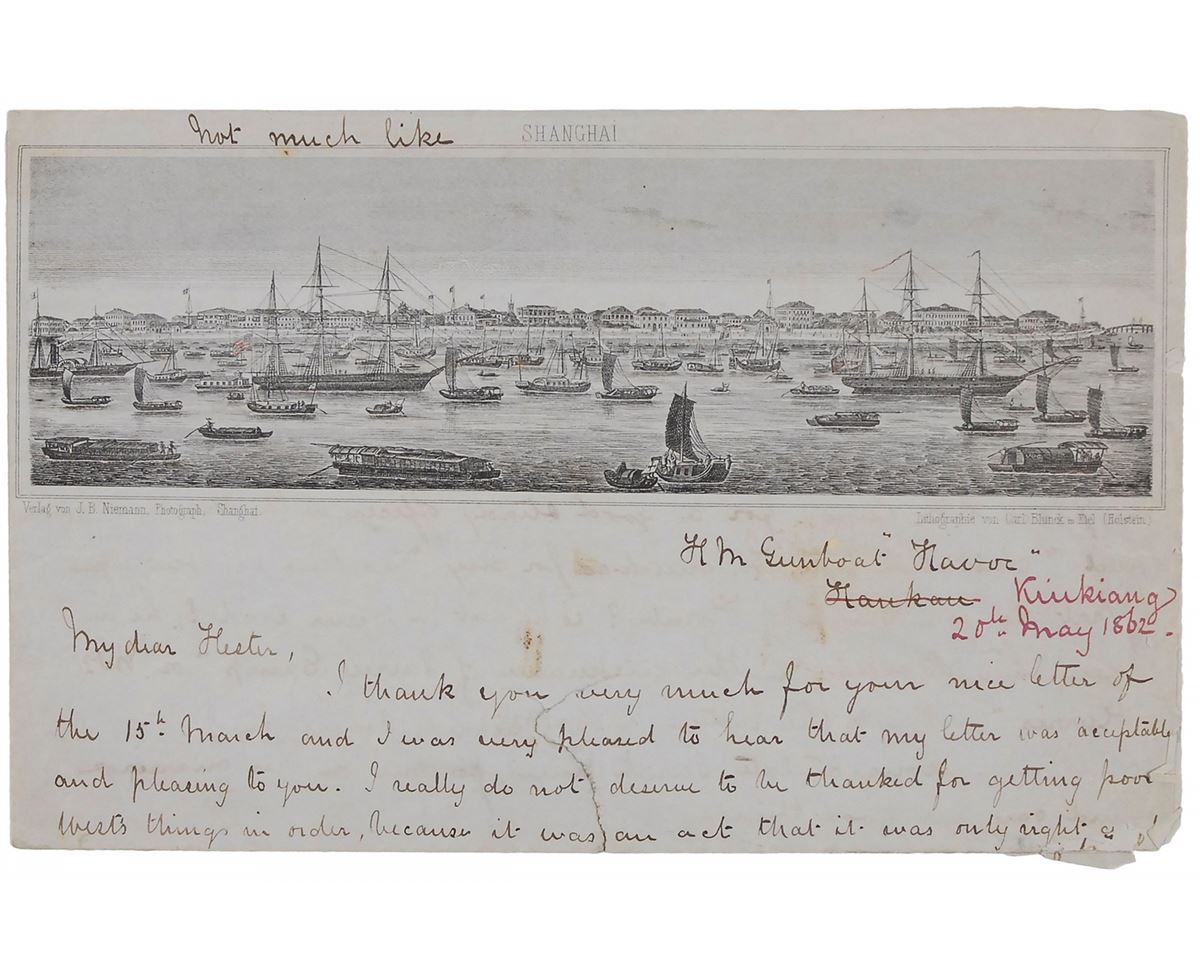 Not much like SHANGHAI
Verlag von J. B. Niemann, Photograph, Shanghai.
Lithographie von Carl Blunck in Kiel (Holstein)
H M Gunboat "Havoc"
Hankau Kiukiang
20th May 1862.
My dear Hester,
I thank you very much for your nice letter of
the 15th March and I was very pleased to hear that my letter was acceptably
and pleasing to you. I really do not deserve to be thanked for getting poor
West's things in order, because it was an act that it was only right